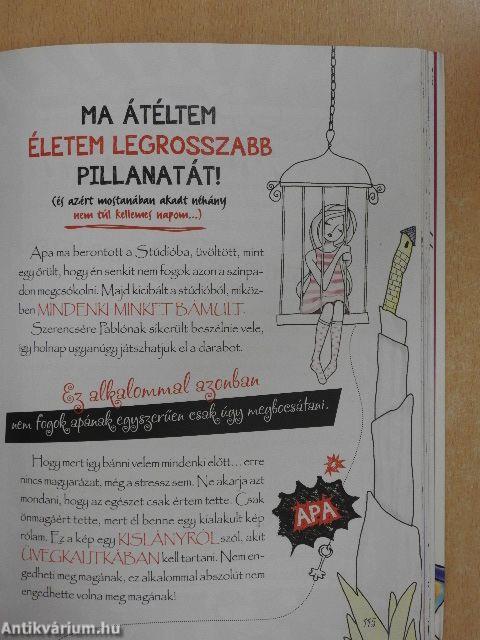 MA ÁTÉLTEM
ÉLETEM LEGROSSZABB
PILLANATÁT!
(és azért mostanában akadt néhány
nem túl kellemes napom...)
Apa ma berontott a Stúdióba, üvöltött, mint
egy őrült, hogy én senkit nem fogok azon a színpa-
don megcsókolni. Majd kicibált a stúdióból, miköz-
ben MINDENKI MINKET BÁMULT.
Szerencsére Pablónak sikerült beszélnie vele,
így holnap ugyanúgy játszhatjuk el a darabot.
Ez alkalommal azonban
nem fogok apának egyszerűen csak úgy megbocsátani.
Hogy mert így bánni velem mindenki előtt... erre
nincs magyarázat, még a stressz sem. Ne akarja azt
mondani, hogy az egészet csak értem tette. Csak
önmagáért tette, mert él benne egy kialakult kép
rólam. Ez a kép egy KISLÁNYRÓL szól, akit
ÜVEGKALITKÁBAN kell tartani. Nem en-
gedheti meg magának, ez alkalommal abszolút nem
engedhette volna meg magának!
APA
115
Antikvárium.hu